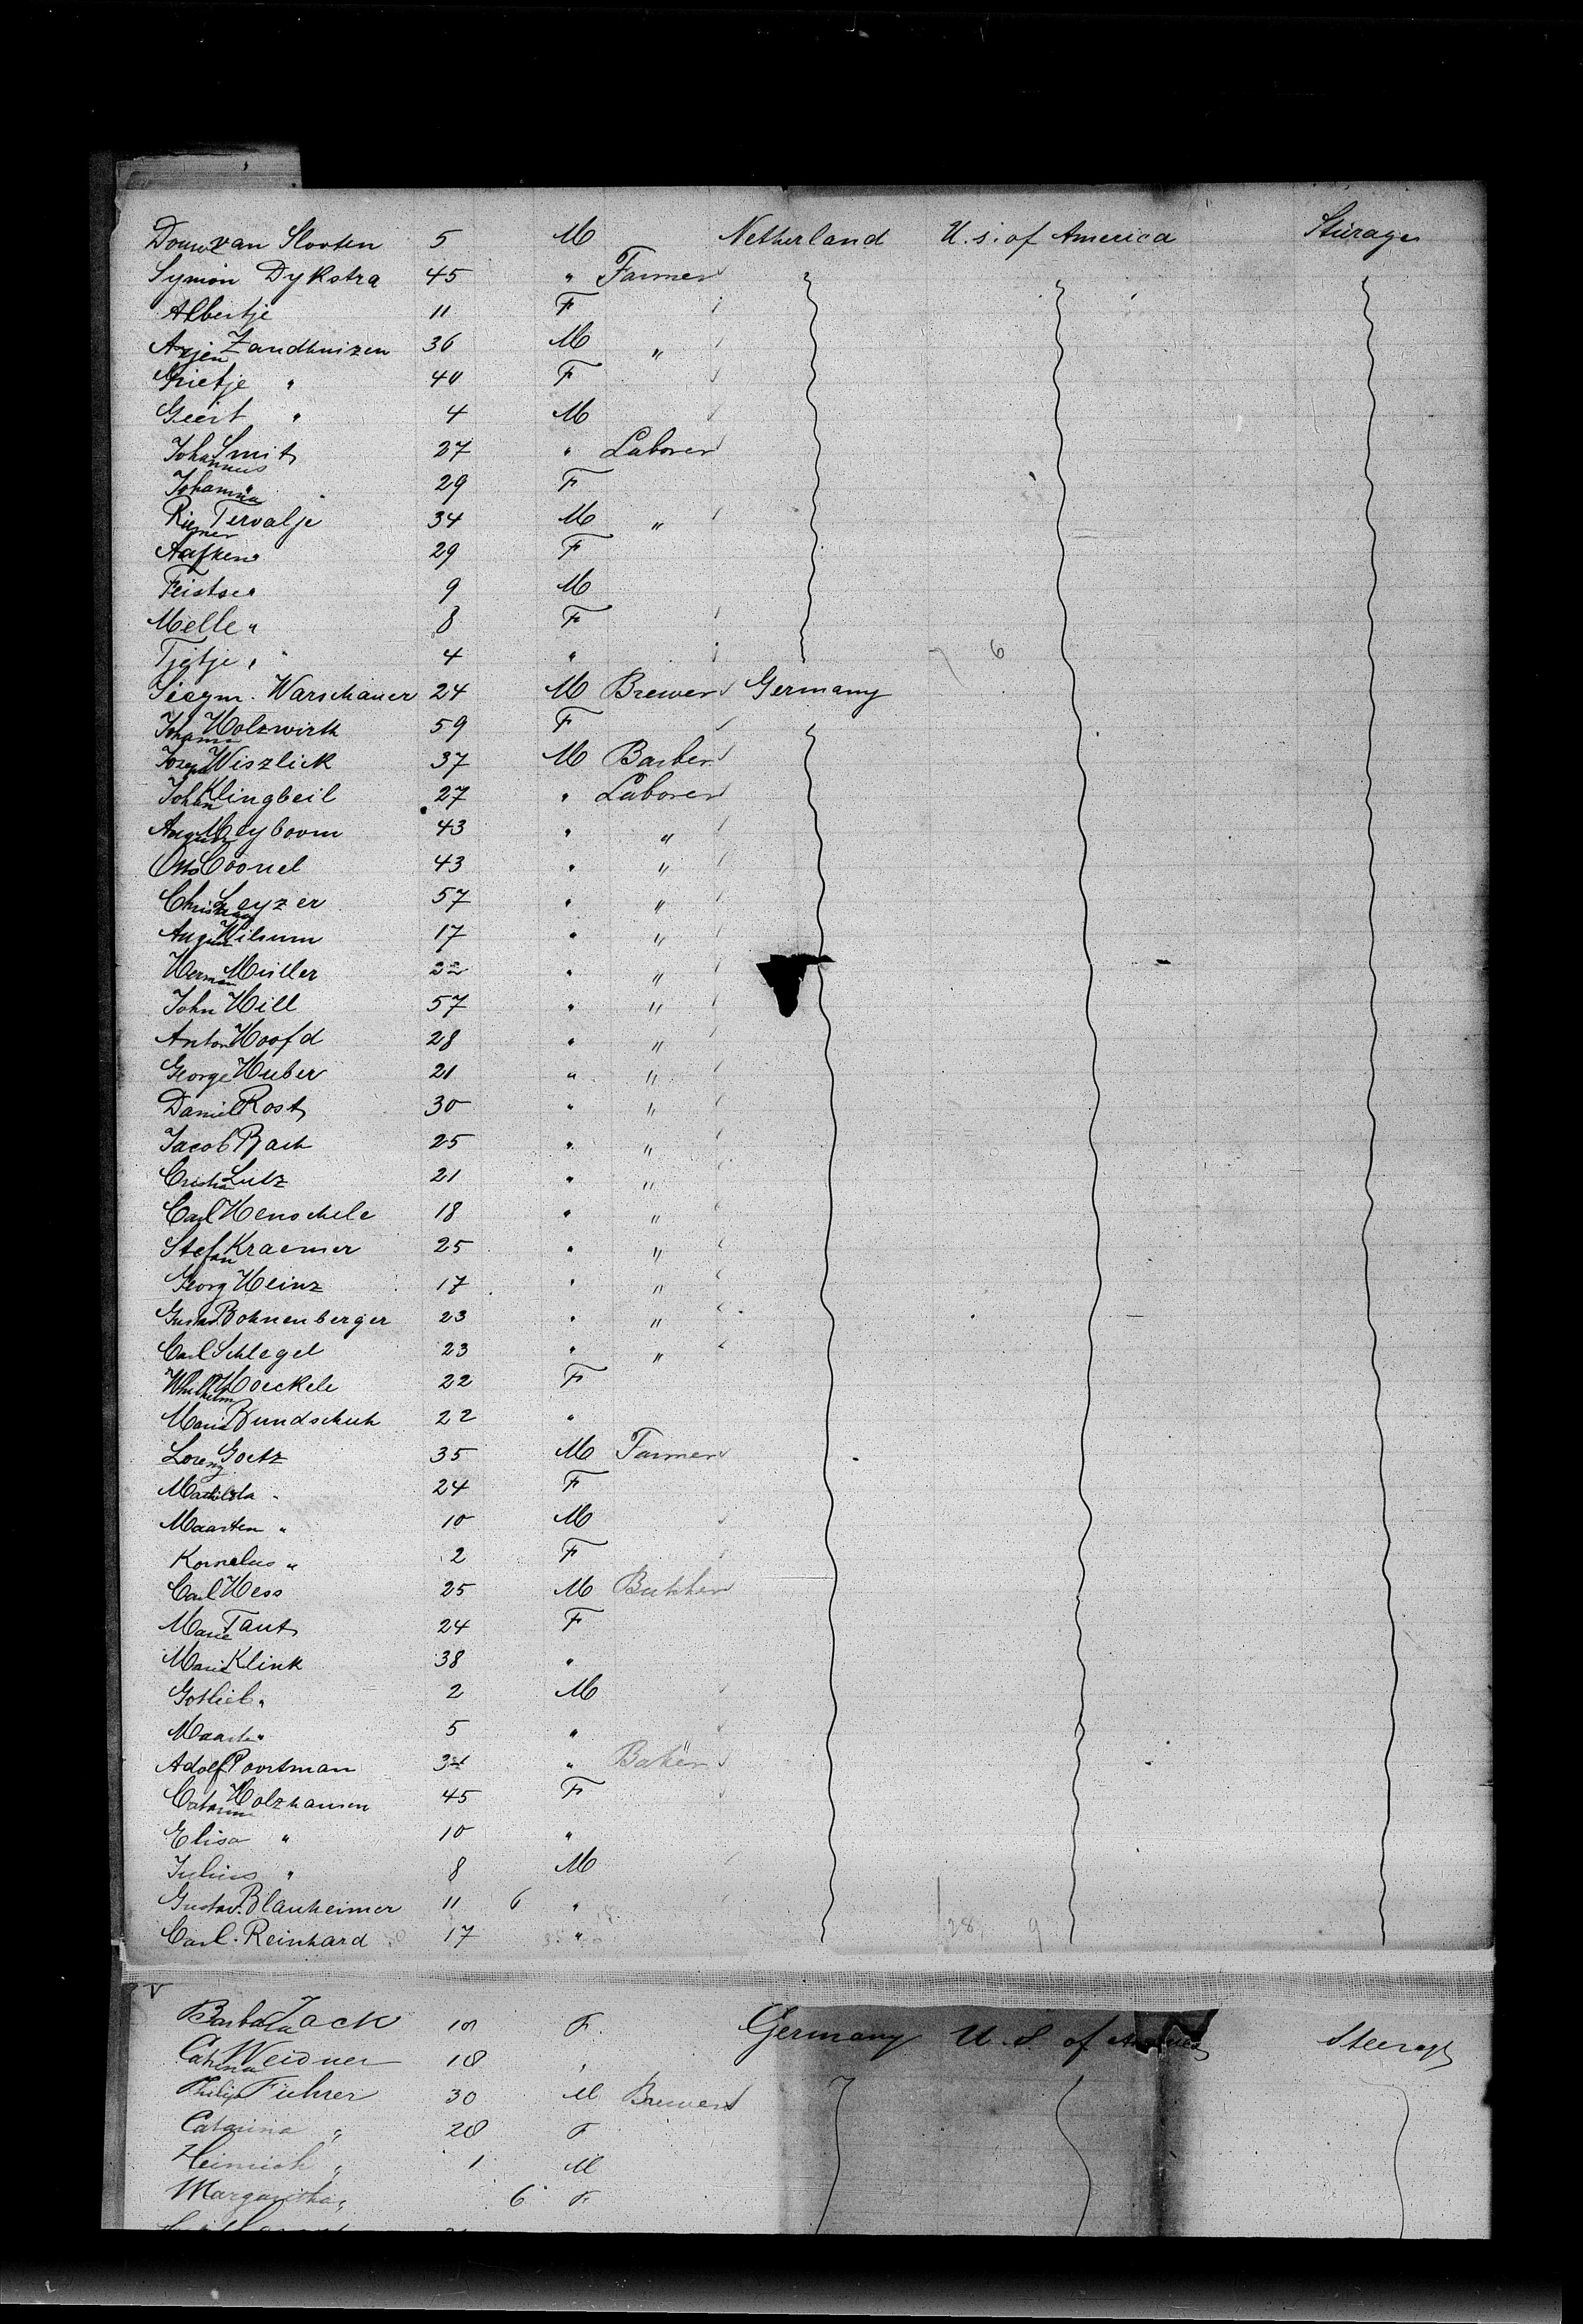 Douwe van Slooten 5 M Netherland U.S. of America Stürage
Symon Dykstra 45 " Farmer
Albertje 11 F
Arjen Zandhuizen 36 M "
Grietje " 40 F
Geert " 4 M
Johannes Smit 27 " Laborer
Johanna " 29 F
Tervalje 34 M "
Aafken 29 F
9 M
Melle " 8 F
Tjetje " 4 " 6
Siegm. Warschauer 24 M Brewer Germany
Johanna Holzwirth 59 F
Joseph Wiszlick 37 M Barber
Johan Klingbeil 27 " Laborer
August Meyboom 43 " "
Otto 43 " "
Christian Leyzer 57 " "
August Wilsum 17 " "
Herman Müller 22 " "
John Hill 57 " "
Anton Hoofd 28 " "
George Huber 21 " "
Daniel Rost 30 " "
Jacob Bach 25 " "
Lutz 21 " "
Carl Henschele 18 " "
Stefan Kraemer 25 " "
Georg Heinz 17 " "
Gustav. Bohnenberger 23 " "
Carl Schlegel 23 " "
Hoeckele 22 F
Maria Bundschuh 22 "
Lorenz Goetz 35 M Farmer
Mathilda " 24 F
Maarten " 10 M
Kornelus " 2 F
Carl Hess 25 M
Marie Taut 24 F
Maria Klink 38 "
Gotlieb " 2 M
5 "
Adolf Poortman " Baker
Catarina Holzhausen 45 F
Elisa " 10 "
Julius " 8 M
Gustav. Blanheimer 11 6 "
Carl. Reinhard 17 " 28 9
Barbara Zack 18 F. Germany U.S. of America Steerage
Catrina Weidner 18 "
Philip Führer 30 M Brewer
Catarina " 28 F
Heinrich " 1 M
Margaritha " 6 F